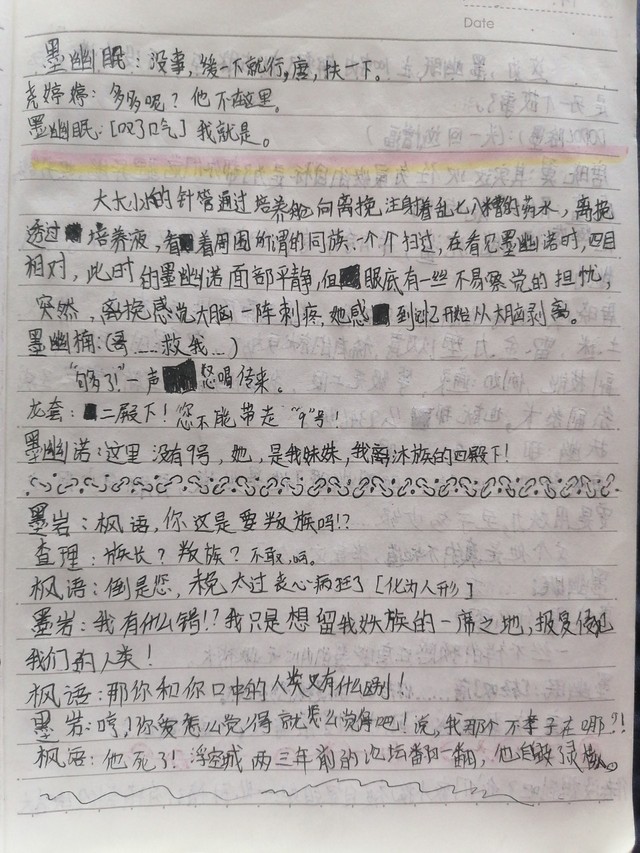 Date
墨幽眠：没事，缓一下就行，麈，扶一下。
尧婷婷：多多呢？他不在这里。
墨幽眠：[叹了口气] 我就是。
大大小小的针管通过培养舱向离挽注射着乱七八糟的药水，离挽
透过培养液，看着周围所谓的同族一个个扫过，在看见墨幽诺时，四目
相对，此时的墨幽诺面部平静，但眼底有一些不易察觉的担忧，
突然，离挽感觉大脑一阵刺疼，她感到记忆开始从大脑剥离。
墨幽楠：(哥……救我…)
“够了！”一声怒喝传来。
龙套：二殿下！您不能带走“9”号！
墨幽诺：这里没有9号，她，是我妹妹，我离沐族的四殿下！
墨岩：枫语，你这是要叛族吗！？
查理：族长？叛族？不敢，呵。
枫语：倒是您，未免太过丧心病狂了 [化为人形]
墨岩：我有什么错！？我只是想留我妖族的一席之地，报复侵犯
我们的人类！
枫语：那你和你口中的人类又有什么区别！
墨岩：哼！你爱怎么觉得就怎么觉得吧！说，我那个不孝子在哪？！
枫语：他死了！浮空城两三年前的论坛翻一翻，他自毁了灵核。